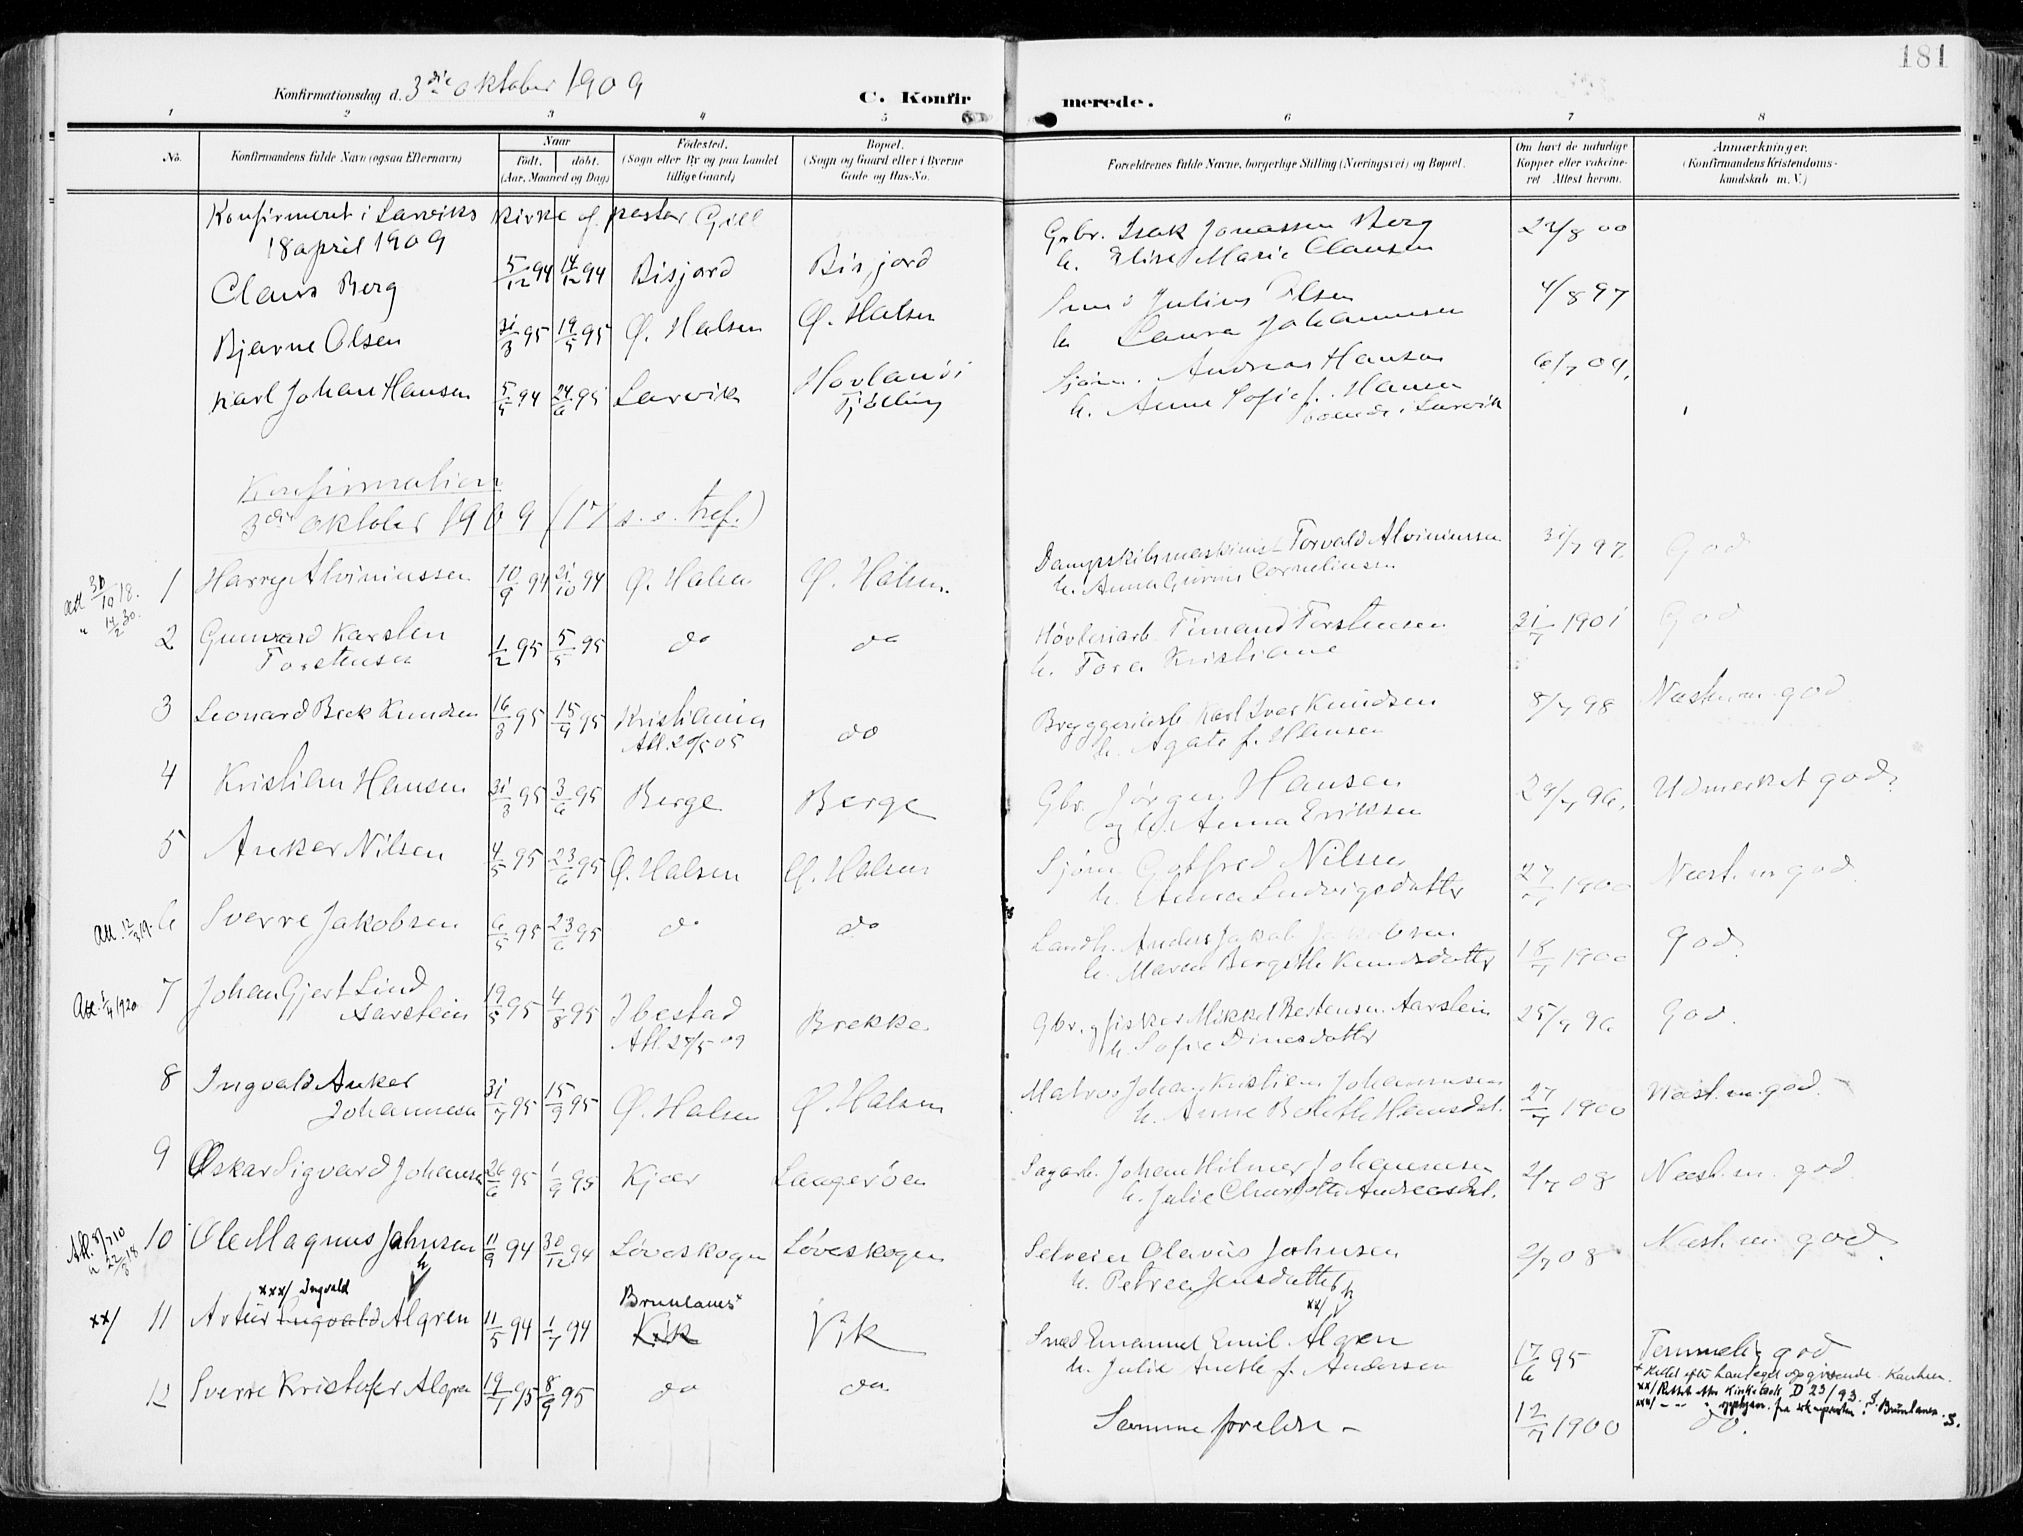 181
Konfirmationsdag d. 3die oktober 1909
C. Konfir merede.
1 2 3 4 5 6 7 8
No.
Konfirmandens fulde Navn (ogsaa Efternavn)
Naar
født. døbt.
(Aar, Maaned og Dag)
Fødested.
(Sogn eller By og paa Landet
tillige Gaard)
Bopæl.
(Sogn og Gaard eller i Byerne
Gade og Hus-No.
Forældrenes fulde Navne, borgerlige Stilling (Næringsvei) og Bopæl.
Om havt de naturlige
Kopper eller vakcine-
ret Attest herom.
Anmærkninger.
(Konfirmandens Kristendoms-
kundskab m. V.)
Konfirmeret i Larviks kirke af pastor Gill
18 april 1909
Claus Berg 5/12 94 14/12 94 Bisjord Bisjord
Gbr. Isak Jonassen Berg
h. Elise Marie Clausen
Bjarne Olsen 31/3 95 19/5 95 Ø. Halsen Ø. Halsen
Julius Olsen 4/8 97
h. Laura Johannessen
Karl Johan Hansen 5/5 94 24/6 95 Larvik
Tjølling
Sjøm. Andreas Hansen 6/7 09.
h. Anne Sofie f. Hansen
i Larvik
Konfirmation
3die oktober 1909 (17 s. e. tref.)
Att 30/10 18.
" 14/2 30.
1 Harry Alviniussen 10/9 94 21/10 94 Ø. Halsen Ø. Halsen.
Dampskibsmaskinist Torvald Alviniussen 31/7 97. God
h. Anna Corneliussen
2 Gunvard Karsten
Torstensen 1/2 95 5/5 95 do do
Høvleriarb. Torstensen 21/7 1901 God
h. Tora Kristiane
3 Leonard Beck Knudsen 16/3 95 15/4 95 Kristiania do
Att. 20/5 05
Bryggeriarb Karl Iver Knudsen 8/7 98 Næst. m. god
h. Agate f. Hansen
4 Kristian Hansen 31/3 95 3/6 95 Berge Berge
Gbr. Jørgen Hansen 29/7 96. Udmerket god.
og h. Anna Eriksen
5 Anker Nilsen 4/5 95 23/6 95 Ø. Halsen Ø. Halsen
Sjøm Gotfred Nilsen 27/7 1900 Næst. m god
h. Anna Ludvigsdatter
Att. 12/3 19.
6 Sverre Jakobsen 6/5 95 23/6 95 do do
Landh. Anders Jakob Jakobsen 18/7 1900 God.
h. Maren Bergithe Knudsdatter
Att. 1/4 1920
7 Johan Gjert Lind
Aarstein 19/5 95 4/8 95 Ibestad Brekke
Att. 28/5 09
Gbr. og fisker Mikkel Bertensen Aarstein 25/9 96 God.
h. Sofie Dinesdatter
8 Ingvald Anker
Johannesen 31/7 95 15/9 95 Ø. Halsen Ø. Halsen
Matros Johan Kristian Johannesen 27/7 1900 Næst. m. god.
h. Anne Bolette Hansdat.
9 Oskar Sigvard Johansen 26/6 95 1/9 95 Kjær Langerøen
Sagarb. Johan Hilmer Johannesen 2/7 08 Næst. m. god
h. Julie Charlotte Andreasdat.
Att. 8/7 10
" 22/8 18
10 Ole Magnus Johnsen 11/9 94 30/12 94 Løveskogen Løveskogen
Selveier Olavus Johnsen 2/7 08 Næst. m. god.
h. Petrea Jensdatter
xxx/ Ingvald
h
xx/ 11 Artur Ingvald Algren 11/5 94 1/7 94 Vik Vik
Brunlanes+
xx/ h
Smed Emanuel Emil Algren 17/6 95 Temmelig god
h. Julie f. Andersen
+ Rettet efter hans eget opgivende
xx/ Rettet efter Kirkebok D 23/93. S.
xxx/ - " - fra sogneprsten i Brunlanes. S.
12 Sverre Kristofer Algren 19/7 95 8/9 95 do do
Samme forældre - 12/7 1900 do.